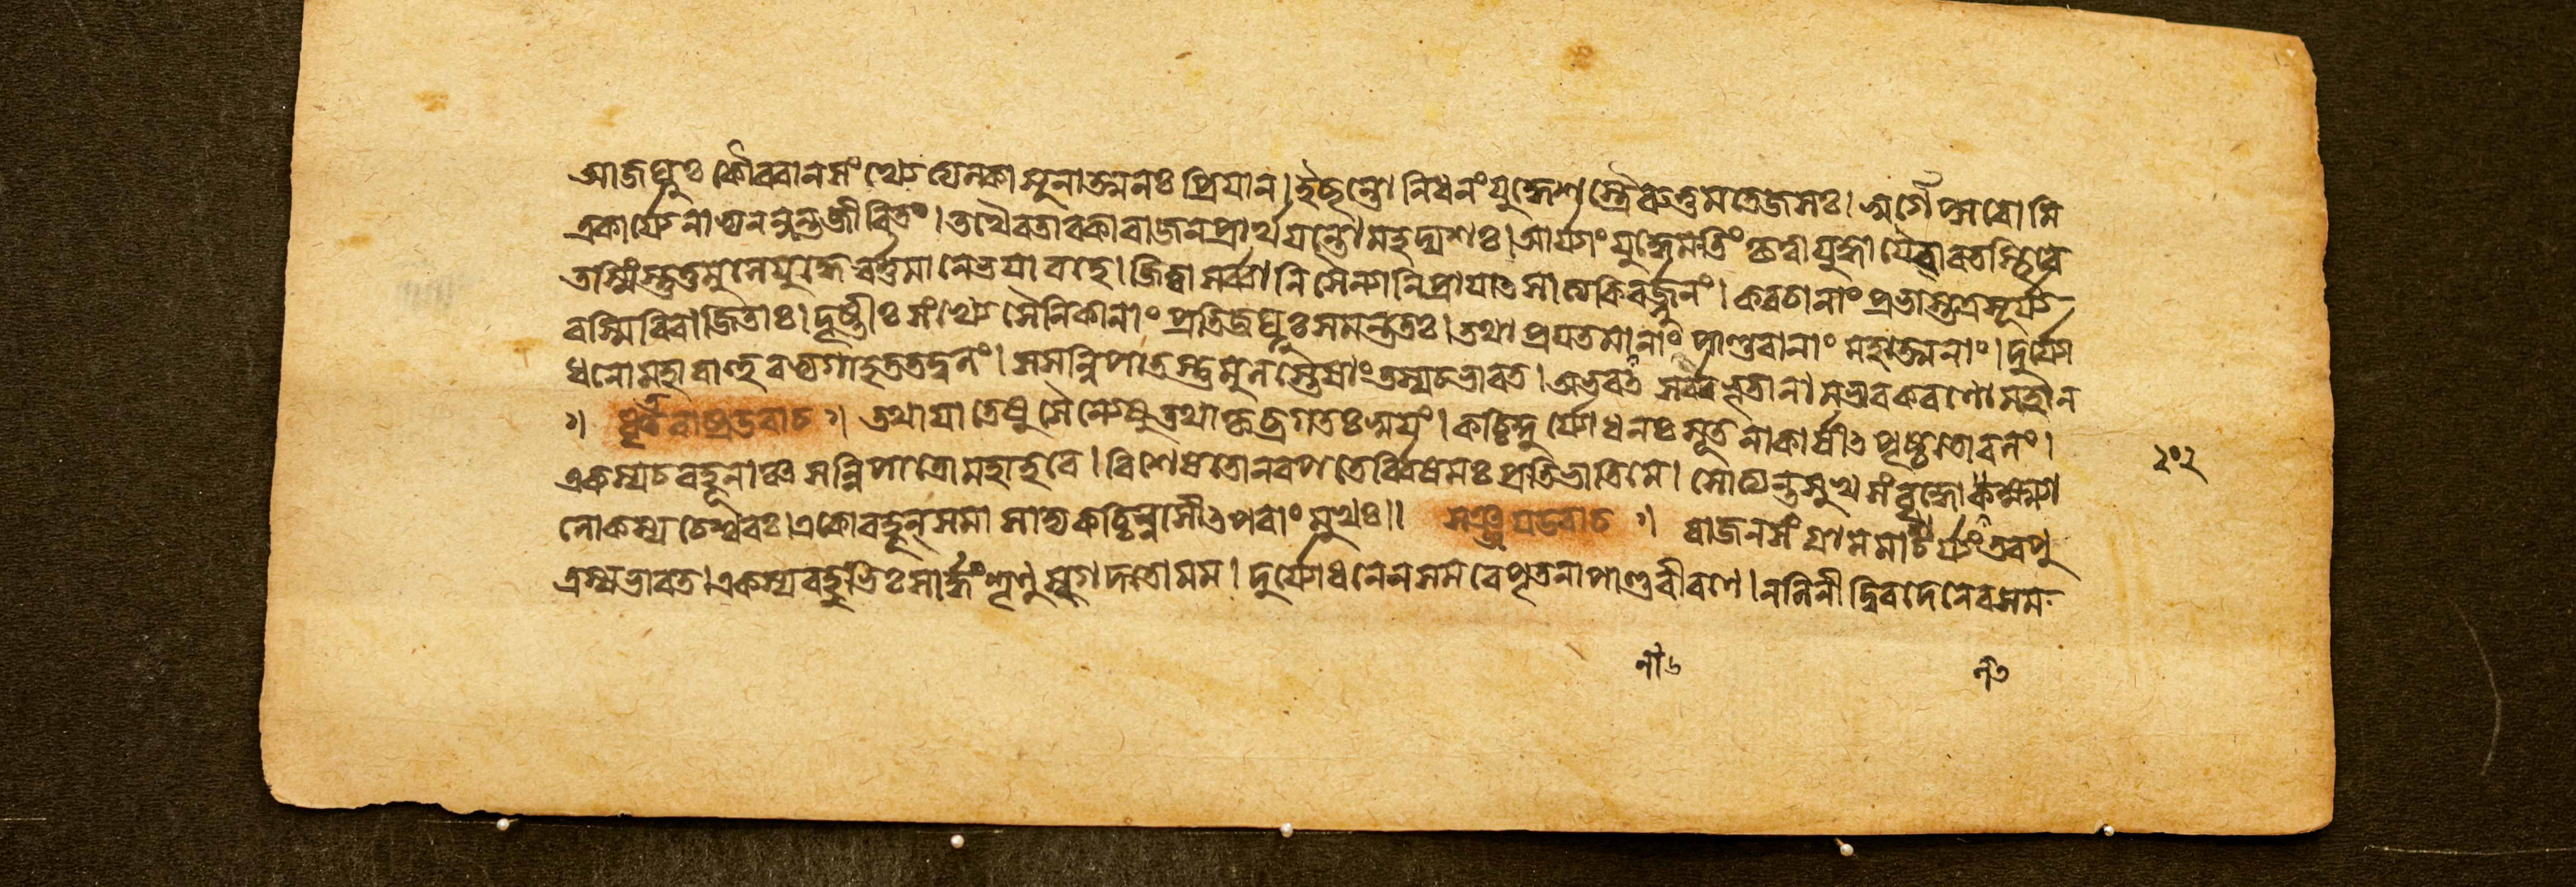 আজঘ্নুঃ কৌরবানসংখ্যে ত্যেক্তাসূনাত্মনঃ প্রিয়ান। ইচ্ছন্তো নিধনং যুদ্ধেশস্ত্রৈরুত্তমতেজসঃ। স্বর্গেপ্সবো মি
ত্রকার্যেণাভ্যনন্দন্তজীবিতং। তথৈবতাবকারাজনপ্রার্থয়ন্তোমহদ্যশঃ। আর্য্যাং যুদ্ধেমতিং কৃত্বাযুদ্ধায়ৈবাবতস্থিরে
তস্মিংস্তুতুমুলেযুদ্ধে বর্ত্তমানেভয়াবহে। জিত্বা সর্ব্বাণি সৈন্যানিপ্রায়াৎ সাত্যকিরর্জ্জুনং। কবচানাং প্রভাস্তত্রসূর্য্য
রশ্মিবিরাজিতাঃ। দৃষ্টীঃ সংখ্যে সৈনিকানাং প্রতিজঘ্নুঃ সমন্ততঃ। তথা প্রযতমানানাং পাণ্ডবানাং মহাত্মনাং। দুর্য্যো
ধনোমহাবাহুর্ব্যগাহততদ্বলং। সসন্নিপাতস্তুমুলস্তেষাং তস্যচভারত। অভবৎ সর্ব্বভূতানামভাবকরণোমহান
॥ ধৃতরাষ্ট্রউবাচ ॥ তথাযাতেষুসৈন্যেষুতথাকৃচ্ছ্রগতঃ স্বয়ং। কচ্চিদ্দুর্য্যোধনঃ সূত নাকার্ষীৎ পৃষ্ঠতোরণং।
একস্যচবহূনাঞ্চ সন্নিপাতোমহাহবে। বিশেষতোনরপতের্বিষমঃ প্রতিভাতিমে। সোত্যন্তসুখসংবৃদ্ধো লক্ষ্ম্যা
লোকস্য চেশ্বরঃ। একোবহূনসমাসাদ্যকচ্চিন্নাসীৎপরাংমুখঃ॥ সঞ্জয়উবাচ ॥ রাজনসংগ্রামমাশ্চর্য্যংতবপু
ত্রস্যভারত। একস্যবহুভিঃ সার্দ্ধংশৃণুষ্বগদতোমম। দুর্য্যোধনেনসমরেপৃতনাপাণ্ডবীরণে। নলিনীদ্বিরদেনেবসম
২০২